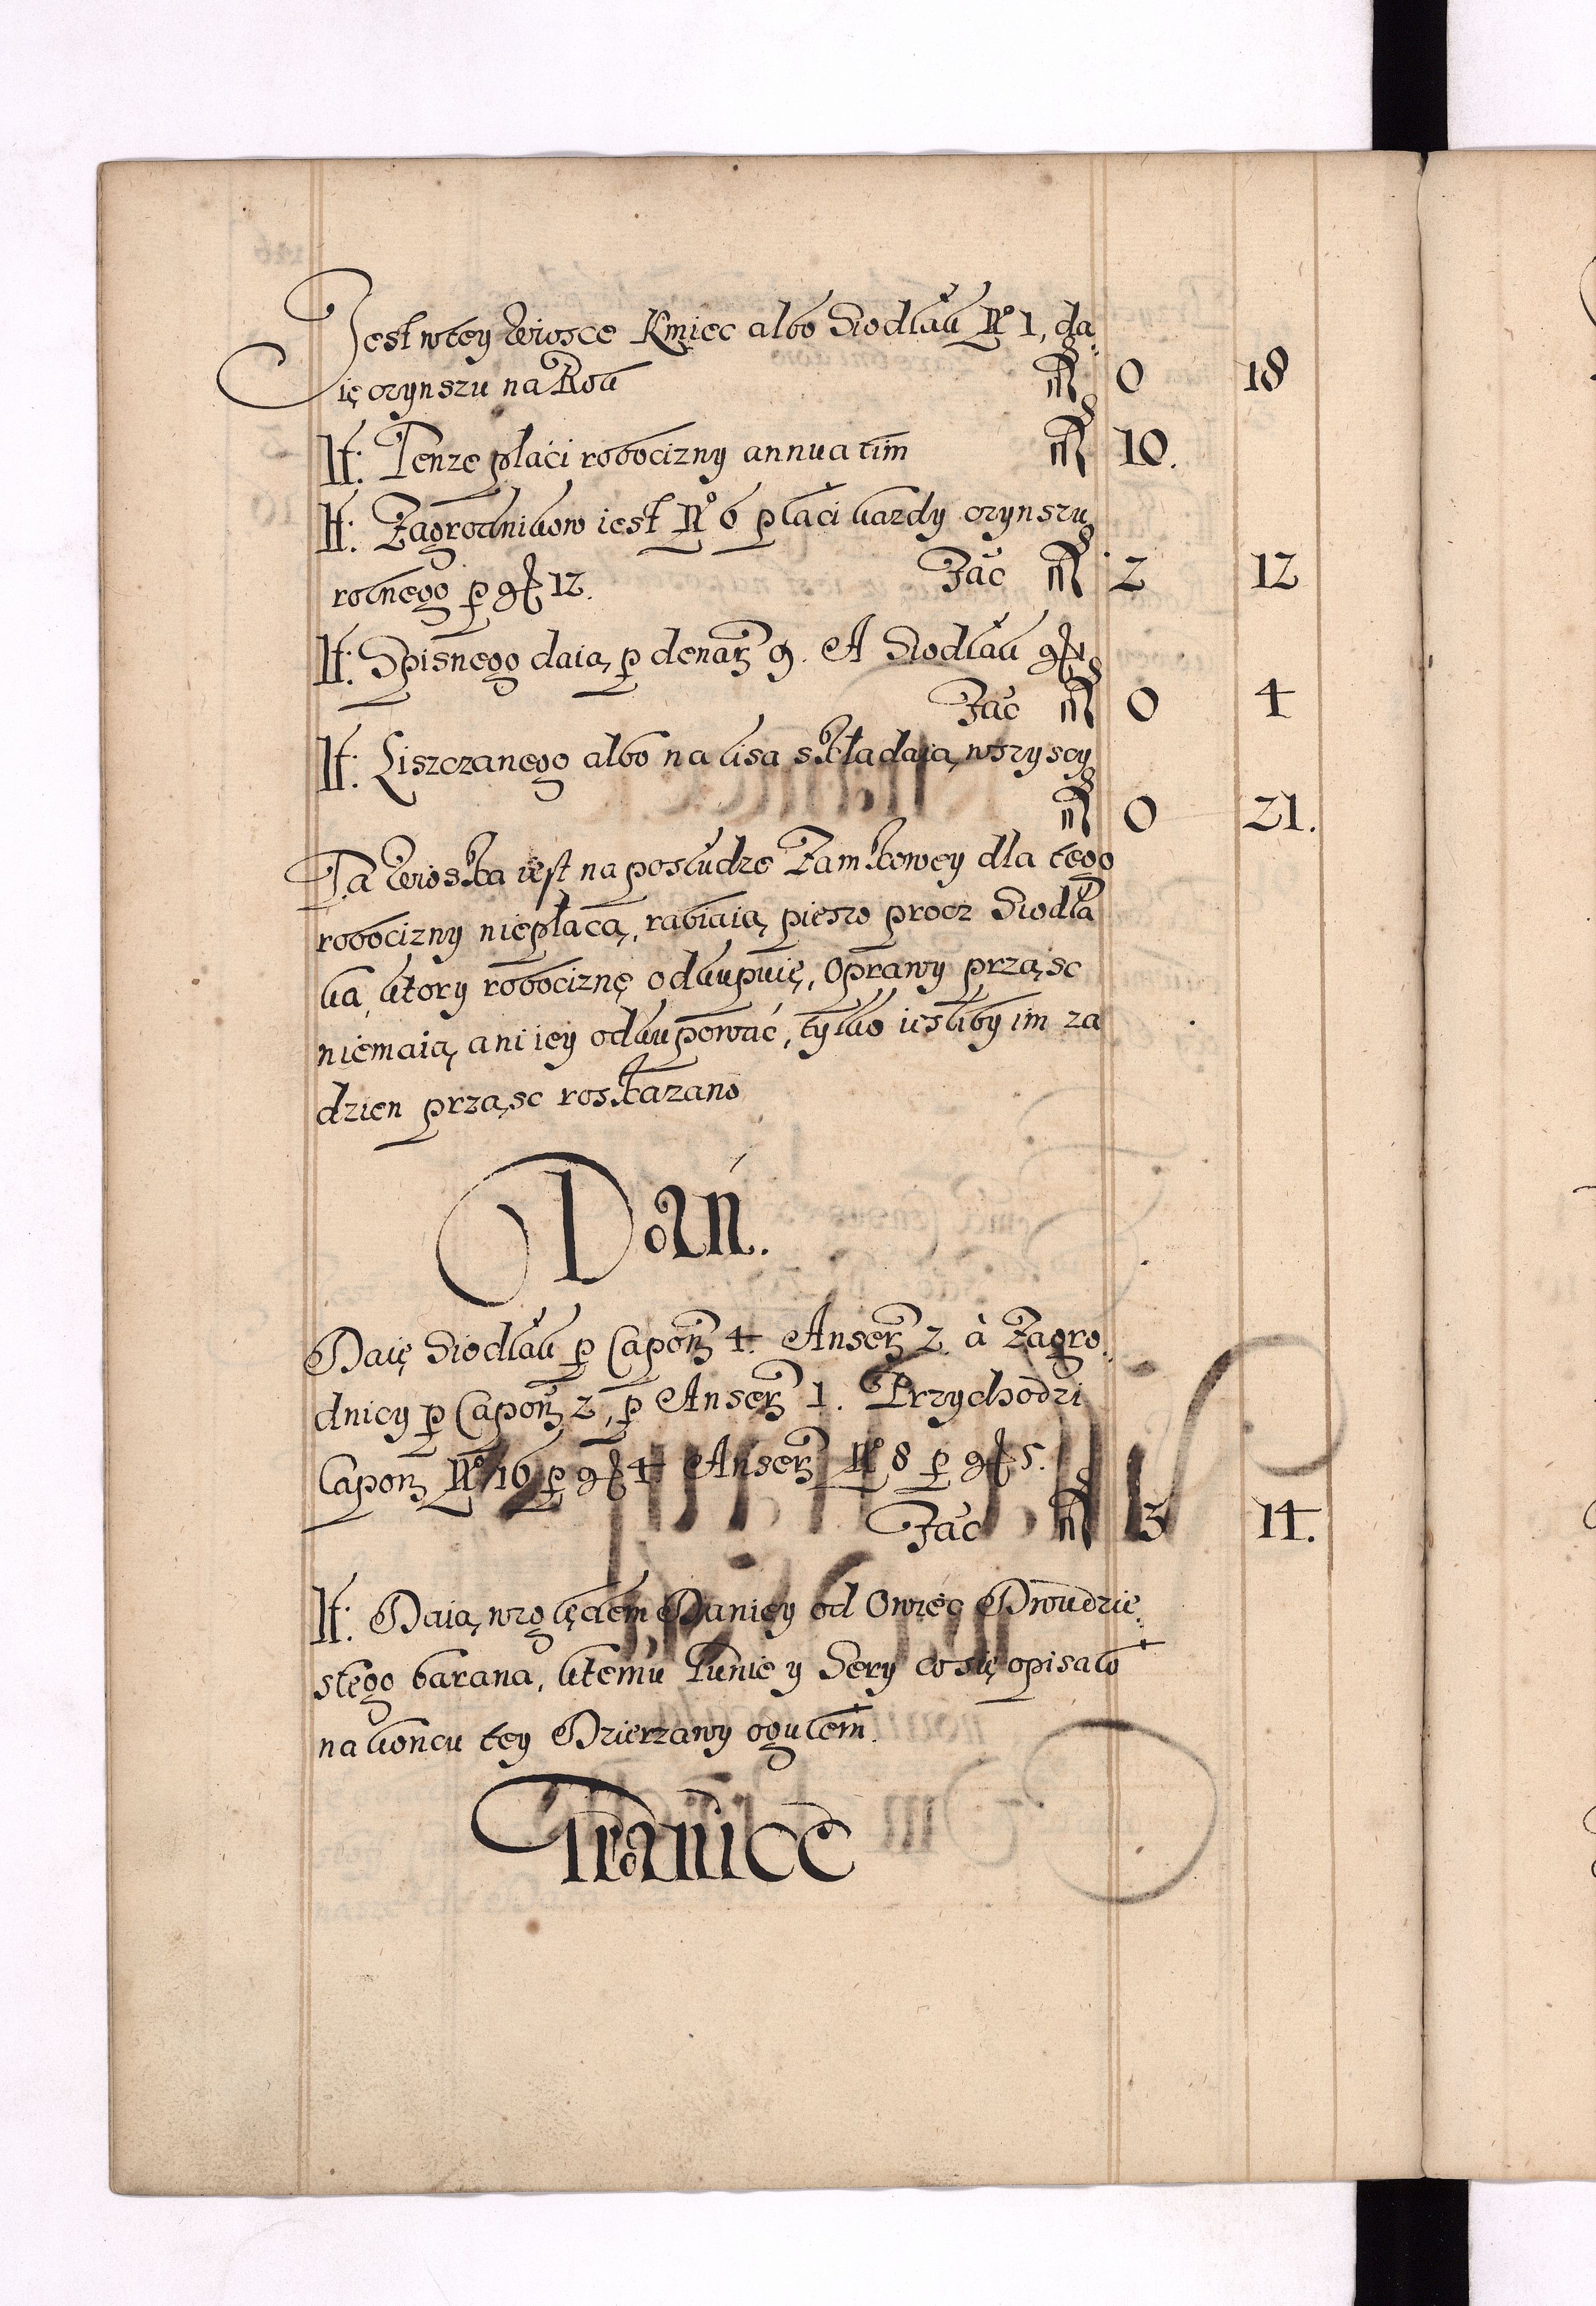 Jest wtey Wiosce Kmiec albo Siodłak No 1, da-
ię czynszu na Rok fl 0 18
It: Tenze płaci robocizny annuatim fl 10.
It: Zagrodnikow iest No 6 płaci kazdy czynszu
rocznego p gr 12. Fac fl 2 12
It: Spisnego daią p denar 9. A Siodłak gr
Fac fl 0 4
It: Liszczanego albo na lisa składaią wszyscy
fl 0 21.
Ta Wioska iest na posłudze Zamkowey dla tego
robocizny niepłacą, rabiaią pieszo procz Siodła
ka, ktory robociznę odkupuię, Oprawy prząsc
niemaią, ani iey odkupować, tylko iesliby im za
dzien prząsc roskazano
Dań.
Daię Siodłak p Capon 4. Anser 2. à Zagro-
dnicy p Capon 2, p Anser 1. Przychodzi
Capon No 16 p gr 4 Anser No 8 p gr 5.
Fac fl 3 14.
It: Daią względem Daniey od Owiec Dwudzie-
stego barana, ktemu Runie y Sery co się opisało
na koncu tey Dzierzawy ogułem.
Granice